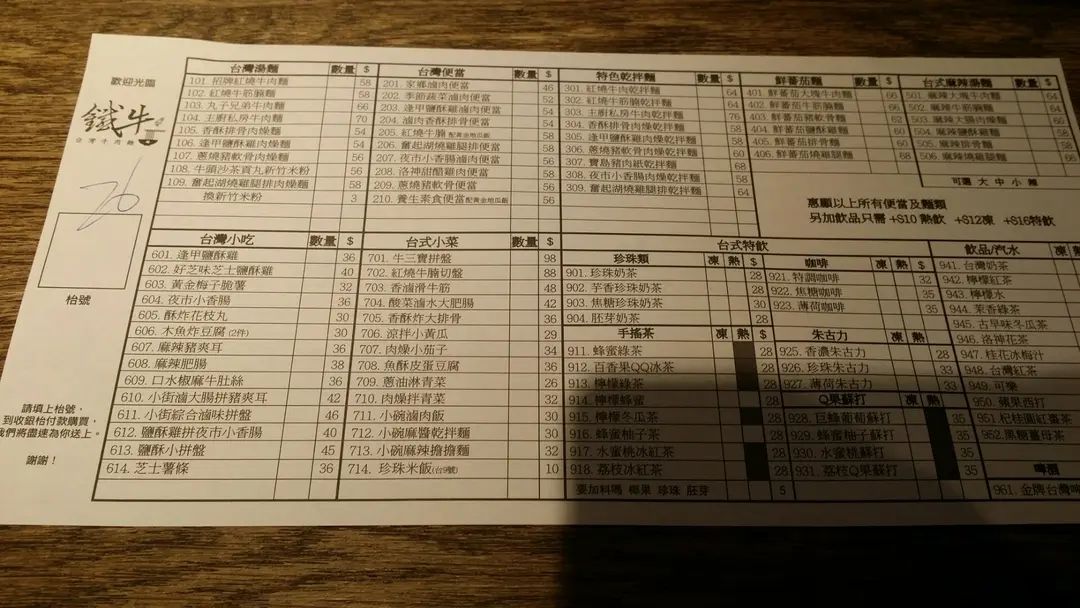 歡迎光臨
鐵牛
台灣牛肉麵
26
枱號
請填上枱號，
到收銀枱付款購買，
我們將盡速為你送上。
謝謝！
台灣湯麵 數量 $
101. 招牌紅燒牛肉麵 58
102. 紅燒牛筋腩麵 58
103. 丸子兄弟牛肉麵 66
104. 主廚私房牛肉麵 70
105. 香酥排骨肉燥麵 54
106. 逢甲鹽酥雞肉燥麵 54
107. 蔥燒豬軟骨肉燥麵 56
108. 牛頭沙茶貢丸新竹米粉 56
109. 奮起湖燒雞腿排肉燥麵 58
換新竹米粉 3
台灣便當 數量 $
201. 家鄉滷肉便當 46
202. 季節蔬菜滷肉便當 52
203. 逢甲鹽酥雞滷肉便當 54
204. 滷肉香酥排骨便當 54
205. 紅燒牛腩 配黃金地瓜飯 60
206. 奮起湖燒雞腿排便當 58
207. 夜市小香腸滷肉便當 56
208. 洛神甜醋雞肉便當 58
209. 蔥燒豬軟骨便當 52
210. 養生素食便當 配黃金地瓜飯 56
特色乾拌麵 數量 $
301. 紅燒牛肉乾拌麵
302. 紅燒牛筋腩乾拌麵 64
303. 主廚私房牛肉乾拌麵 76
304. 香酥排骨肉燥乾拌麵 58
305. 逢甲鹽酥雞肉燥乾拌麵 58
306. 蔥燒豬軟骨肉燥乾拌麵 60
307. 寶島豬肉紙乾拌麵 68
308. 夜市小香腸肉燥乾拌麵 58
309. 奮起湖燒雞腿排乾拌麵 64
鮮蕃茄麵 數量 $
401. 鮮蕃茄大塊牛肉麵 66
402. 鮮蕃茄牛筋腩麵
403. 鮮蕃茄豬軟骨麵
404. 鮮蕃茄鹽酥雞麵
405. 鮮蕃茄排骨麵
406. 鮮蕃茄燒雞腿麵 68
台式麻辣湯麵 數量 $
501. 麻辣大塊牛肉麵 64
502. 麻辣牛筋腩麵 64
503. 麻辣大腸肉燥麵
504. 麻辣鹽酥雞麵
505. 麻辣排骨麵
506. 麻辣燒雞腿麵
可選 大 中 小 辣
惠顧以上所有便當及麵類
另加飲品只需 +$10 熱飲 +$12凍 +$16特飲
台灣小吃 數量 $
601. 逢甲鹽酥雞 36
602. 好芝味芝士鹽酥雞 40
603. 黃金梅子脆薯 32
604. 夜市小香腸 36
605. 酥炸花枝丸 30
606. 木魚炸豆腐(2件) 30
607. 麻辣豬爽耳 36
608. 麻辣肥腸 38
609. 口水椒麻牛肚絲 36
610. 小街滷大腸拼豬爽耳 42
611. 小街綜合滷味拼盤 46
612. 鹽酥雞拼夜市小香腸 40
613. 鹽酥小拼盤 45
614. 芝士薯條 36
台式小菜 數量 $
701. 牛三寶拼盤 98
702. 紅燒牛腩切盤 88
703. 香滷滑牛筋 48
704. 酸菜滷水大肥腸 42
705. 香酥炸大排骨 36
706. 涼拌小黃瓜 29
707. 肉燥小茄子 34
708. 魚酥皮蛋豆腐 36
709. 蔥油淋青菜 26
710. 肉燥拌青菜 32
711. 小碗滷肉飯 30
712. 小碗麻醬乾拌麵 30
713. 小碗麻辣擔擔麵 32
714. 珍珠米飯(台9號) 10
台式特飲
珍珠類 凍 熱 $
901. 珍珠奶茶 28
902. 芋香珍珠奶茶 30
903. 焦糖珍珠奶茶 30
904. 胚芽奶茶 28
手搖茶 凍 熱 $
911. 蜂蜜綠茶 28
912. 百香果QQ冰茶 28
913. 檸檬綠茶 28
914. 檸檬蜂蜜 28
915. 檸檬冬瓜茶 28
916. 蜂蜜柚子茶 28
917. 水蜜桃冰紅茶 28
918. 荔枝冰紅茶 28
要加料嗎 椰果 珍珠 胚芽 5
咖啡 凍 熱 $
921. 特調咖啡 32
922. 焦糖咖啡 35
923. 薄荷咖啡 35
朱古力
925. 香濃朱古力 28
926. 珍珠朱古力 33
927. 薄荷朱古力 33
Q果蘇打 凍 熱
928. 巨蜂葡萄蘇打 35
929. 蜂蜜柚子蘇打 35
930. 水蜜桃蘇打 35
931. 荔枝Q果蘇打 35
飲品/汽水 凍 熱
941. 台灣奶茶
942. 檸檬紅茶
943. 檸檬水
944. 茉香綠茶
945. 古早味冬瓜茶
946. 洛神花茶
947. 桂花冰梅汁
948. 台灣紅茶
949. 可樂
950. 蘋果西打
951. 杞桂圓紅棗茶
952. 黑糖薑母茶
啤酒
961. 金牌台灣啤